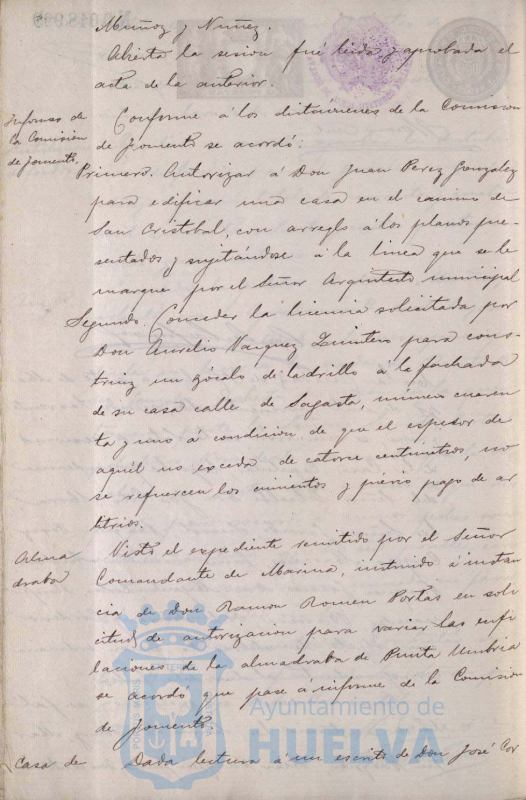 Muñoz y Nuñez.
Abierta la sesion fué leida y aprobada el
acta de la anterior.
Informes de
la Comision
de Fomento.
Conforme á los dictámenes de la Comision
de Fomento se acordó:
Primero. Autorizar á Don Juan Perez Gonzalez
para edificar una casa en el camino de
San Cristobal, con arreglo á los planos pre-
sentados y sujetándose á la linea que se le
marque por el Señor Arquitecto municipal
Segundo. Conceder la licencia solicitada por
Don Aurelio Vazquez Quintero para cons-
truir un zócalo de ladrillo á la fachada
de su casa calle de Sagasta, número cuaren
ta y uno á condicion de que el espesor de
aquél no exceda de catorce centimetros, no
se refuercen los cimientos y prévio pago de ar
bitrios.
Alma
draba
Visto el expediente remitido por el Señor
Comandante de Marina, instruido á instan
cia de Don Ramon Romeu Portas en soli
citud de autorizacion para variar las enfi
laciones de la almadraba de Punta Umbria
se acordó que pase á informe de la Comision
de Fomento.
Casa de
Dada lectura á un escrito de Don José Cor
Ayuntamiento de
HUELVA